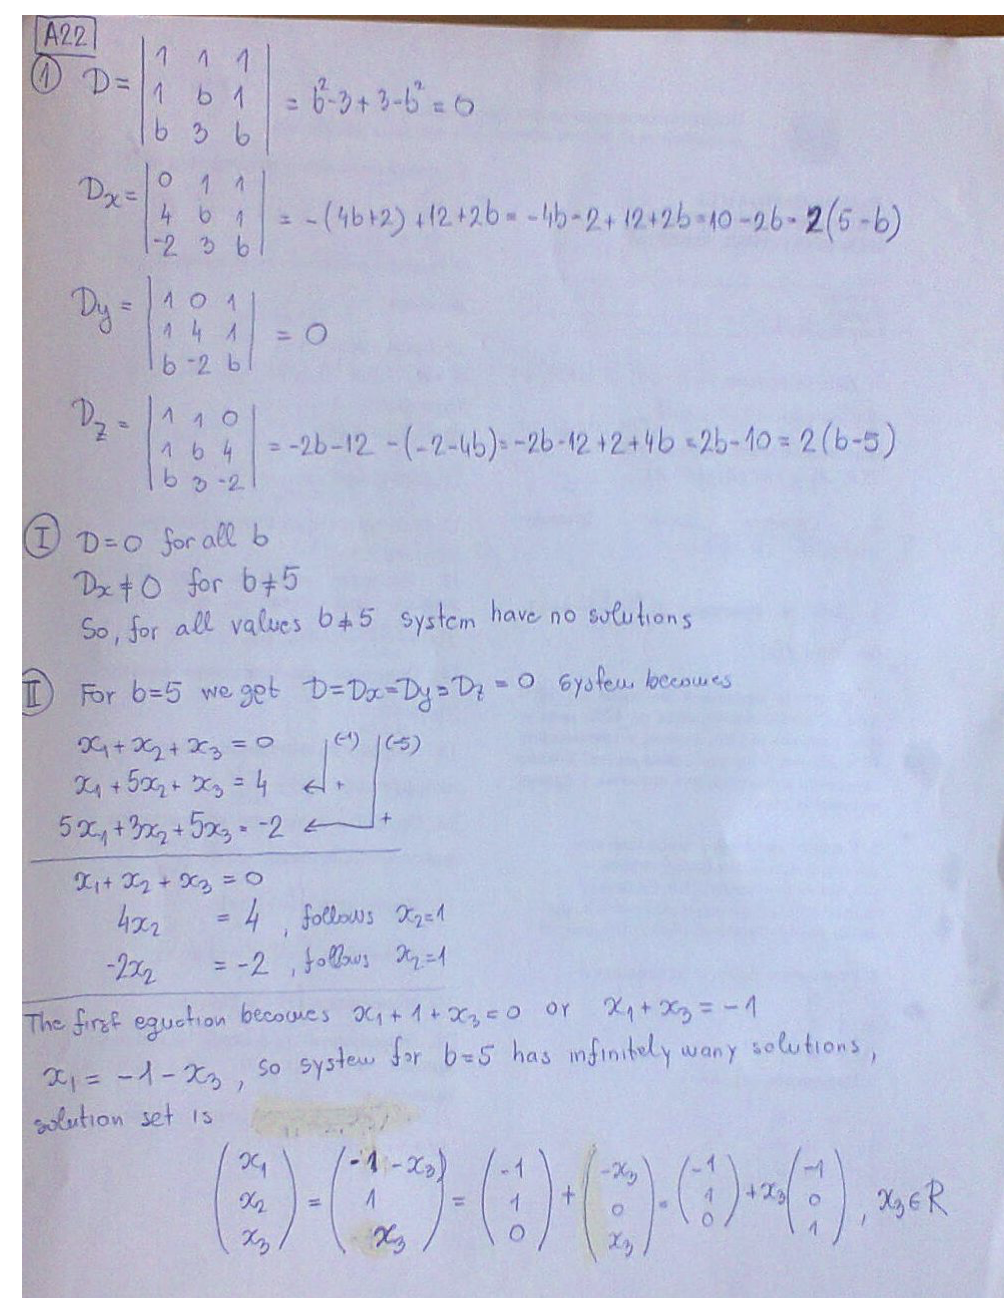 A22
① D = | 1 1 1 |
| 1 b 1 | = b²-3+3-b² = 0
| b 3 b |
Dx = | 0 1 1 |
| 4 b 1 | = -(4b+2)+12+2b = -4b-2+12+2b = 10-2b = 2(5-b)
| -2 3 b |
Dy = | 1 0 1 |
| 1 4 1 | = 0
| b -2 b |
Dz = | 1 1 0 |
| 1 b 4 | = -2b-12 -(-2-4b) = -2b-12+2+4b = 2b-10 = 2(b-5)
| b 3 -2 |
Ⓘ D=0 for all b
Dx≠0 for b≠5
So, for all values b≠5 system have no solutions
Ⅱ For b=5 we get D=Dx=Dy=Dz=0 system becomes
x₁+x₂+x₃=0 |(-1) |(-5)
x₁+5x₂+x₃=4 ← +
5x₁+3x₂+5x₃=-2 ← +
x₁+x₂+x₃=0
4x₂ = 4, follows x₂=1
-2x₂ = -2, follows x₂=1
The first equction becomes x₁+1+x₃=0 or x₁+x₃=-1
x₁=-1-x₃, so system for b=5 has infinitely many solutions,
solution set is
(x₁) (-1-x₃) (-1) (-x₃) (-1) (-1)
(x₂) = (1) = (1) + (0) = (1) + x₃ (0), x₃∈R
(x₃) (x₃) (0) (x₃) (0) (1)